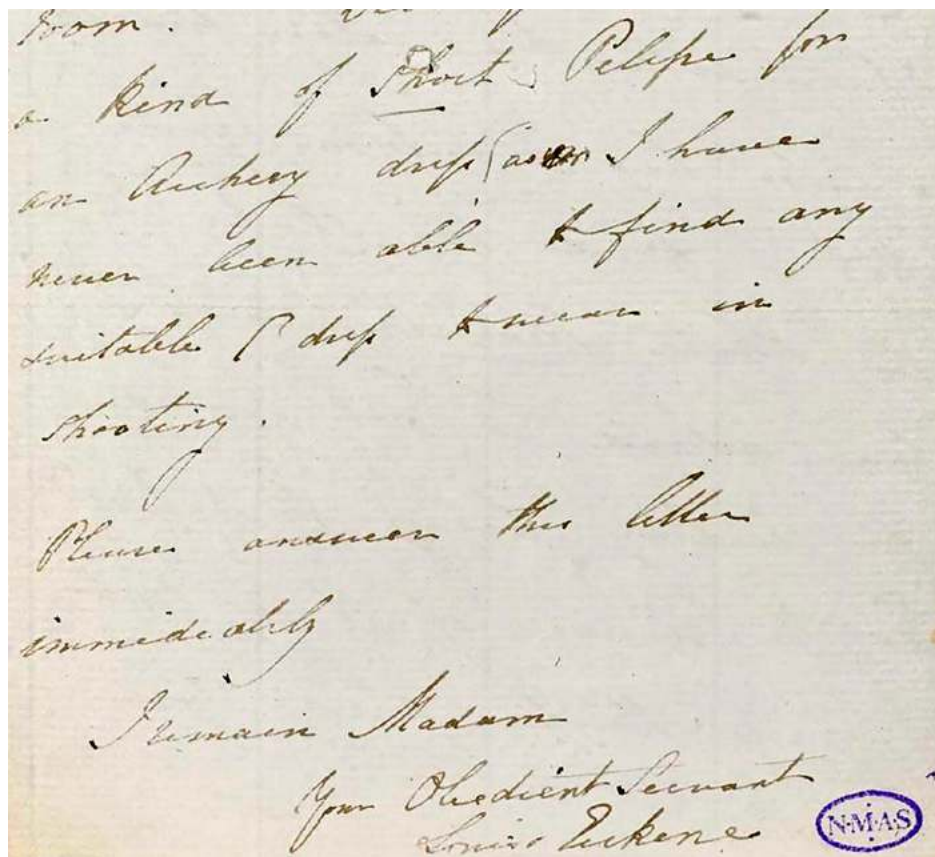 room.
a kind of Short Pelisse for
an Archery dress (as I have
never been able to find any
suitable dress to wear in
shooting.
Please answer this letter
immediately
I remain Madam
Your Obedient Servant
Louisa
N·M·A·S